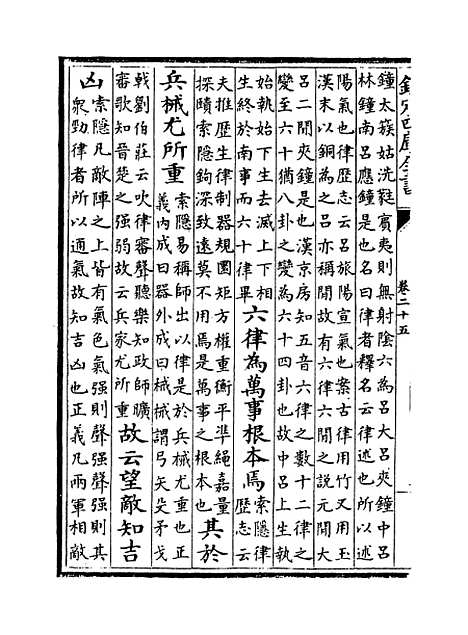 欽定四庫全書
卷二十五
鐘太簇姑洗蕤賓夷則無射陰六為呂大呂夾鐘中呂
林鐘南呂應鐘是也名曰律者釋名云律述也所以述
陽氣也律歷志云呂旅陽宣氣也案古律用竹又用玉
漢末以銅為之呂亦稱間故有六律六間之説元間大
呂二間夾鐘是也漢京房知五音六律之數十二律之
變至六十猶八卦之變為六十四卦也故中呂上生執
始執始下生去滅上下相
生終於南事而六十律畢
六律為萬事根本焉
索隱律
歷志云
夫推歴生律制器規圜矩方權重衡平凖繩嘉量
探賾索隱鉤深致遠莫不用焉是萬事之根本也
其於
兵械尤所重
索隱易稱師出以律是於兵械尤重也正
義内成曰器外成曰械械謂弓矢殳矛戈
戟劉伯莊云吹律審聲聽樂知政師曠
審歌知晉楚之强弱故云兵家尤所重
故云望敵知吉
凶
索隱凡敵陣之上皆有氣色氣强則聲强聲强則其
衆勁律者所以通氣故知吉凶也正義凡兩軍相敵